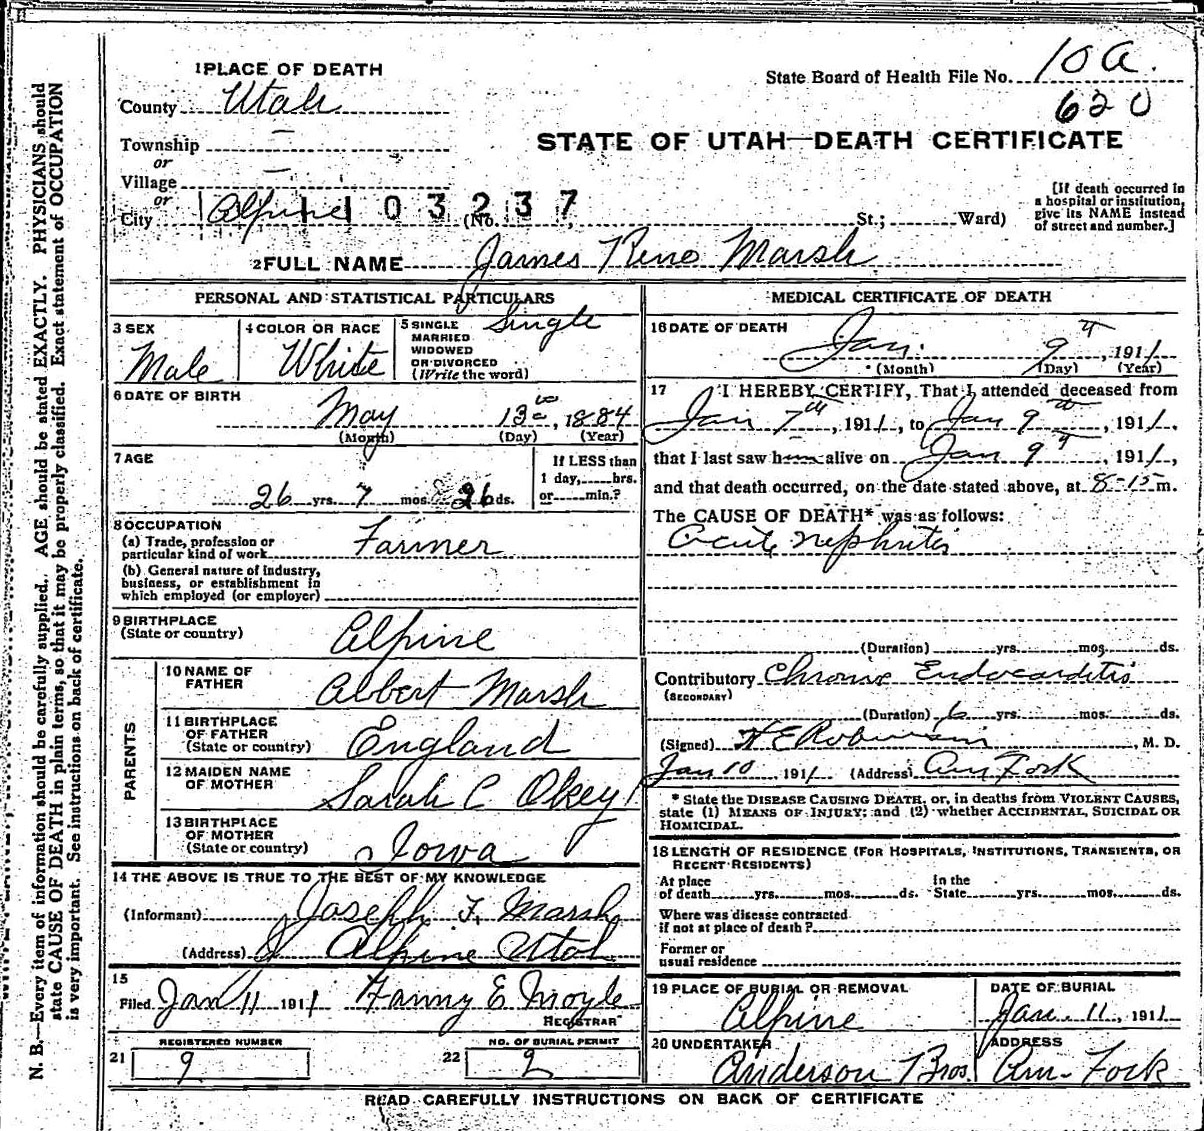 N. B.—Every item of information should be carefully supplied. AGE should be stated EXACTLY. PHYSICIANS should
state CAUSE OF DEATH in plain terms, so that it may be properly classified. Exact statement of OCCUPATION
is very important. See instructions on back of certificate.
1 PLACE OF DEATH
County Utah
Township —
or
Village —
or
City Alpine
1103237
(No. St.; Ward)
State Board of Health File No. 10 a.
620
STATE OF UTAH—DEATH CERTIFICATE
[If death occurred in
a hospital or institution,
give its NAME instead
of street and number.]
2 FULL NAME James Reno Marsh
PERSONAL AND STATISTICAL PARTICULARS
3 SEX
Male
4 COLOR OR RACE
White
5 SINGLE
MARRIED
WIDOWED
OR DIVORCED
(Write the word)
Single
6 DATE OF BIRTH
May 13, 1884
(Month) (Day) (Year)
7 AGE
26 yrs. 7 mos. 26 ds.
If LESS than
1 day, hrs.
or min.?
8 OCCUPATION
(a) Trade, profession or
particular kind of work Farmer
(b) General nature of industry,
business, or establishment in
which employed (or employer)
9 BIRTHPLACE
(State or country)
Alpine
PARENTS
10 NAME OF
FATHER
Albert Marsh
11 BIRTHPLACE
OF FATHER
(State or country)
England
12 MAIDEN NAME
OF MOTHER
Sarah C Okey
13 BIRTHPLACE
OF MOTHER
(State or country)
Iowa
14 THE ABOVE IS TRUE TO THE BEST OF MY KNOWLEDGE
(Informant) Joseph F. Marsh
(Address) Alpine Utah
15
Filed Jan 11 1911 Fanny E Moyle
REGISTRAR
REGISTERED NUMBER
21 9
NO. OF BURIAL PERMIT
22 9
MEDICAL CERTIFICATE OF DEATH
16 DATE OF DEATH
Jan. 9th, 1911
(Month) (Day) (Year)
17 I HEREBY CERTIFY, That I attended deceased from
Jan 7th, 1911, to Jan 9th, 1911,
that I last saw him alive on Jan 9th, 1911,
and that death occurred, on the date stated above, at 8-15 m.
The CAUSE OF DEATH* was as follows:
Acute Nephritis
(Duration) yrs. mos. ds.
Contributory Chronic Endocarditis
(SECONDARY)
(Duration) 6 yrs. mos. ds.
(Signed) , M. D.
Jan 10, 1911 (Address) Am Fork
* State the DISEASE CAUSING DEATH, or, in deaths from VIOLENT CAUSES,
state (1) MEANS OF INJURY; and (2) whether ACCIDENTAL, SUICIDAL OR
HOMICIDAL.
18 LENGTH OF RESIDENCE (FOR HOSPITALS, INSTITUTIONS, TRANSIENTS, OR
RECENT RESIDENTS)
At place
of death yrs. mos. ds.
In the
State yrs. mos. ds.
Where was disease contracted
if not at place of death?
Former or
usual residence
19 PLACE OF BURIAL OR REMOVAL
Alpine
DATE OF BURIAL
Jan. 11, 1911
20 UNDERTAKER
Anderson Bros.
ADDRESS
Am. Fork
READ CAREFULLY INSTRUCTIONS ON BACK OF CERTIFICATE